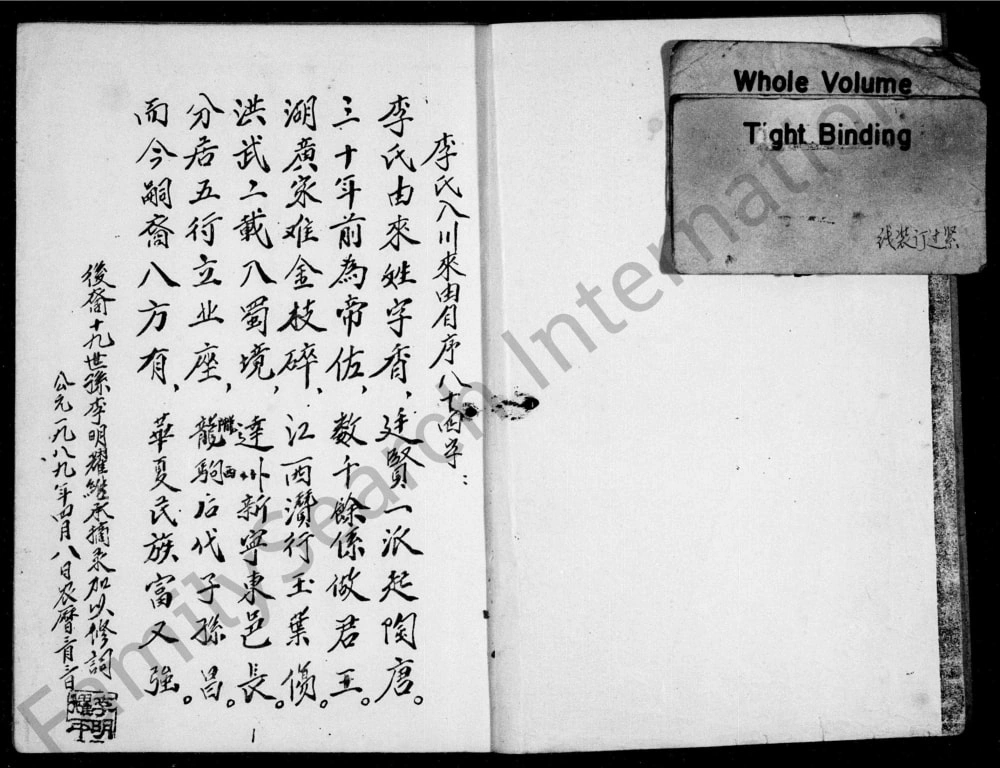 Whole Volume
Tight Binding
线装订过紧
李氏入川來由自序八十四字：
李氏由來姓字香，廷賢一派起陶唐。
三十年前為帝佐，数千餘係做君王。
湖廣家难金枝碎，江西灒行玉葉傷。
洪武二載入蜀境，達州新宁東邑長。
分居五行立业座，龍駒后代子孫昌。
隴西
而今嗣裔八方有，華夏民族富又強。
後裔十九世孫李明耀継承摘录加以修詞
公元一九八九年四月八日农曆三月
1
FamilySearch International